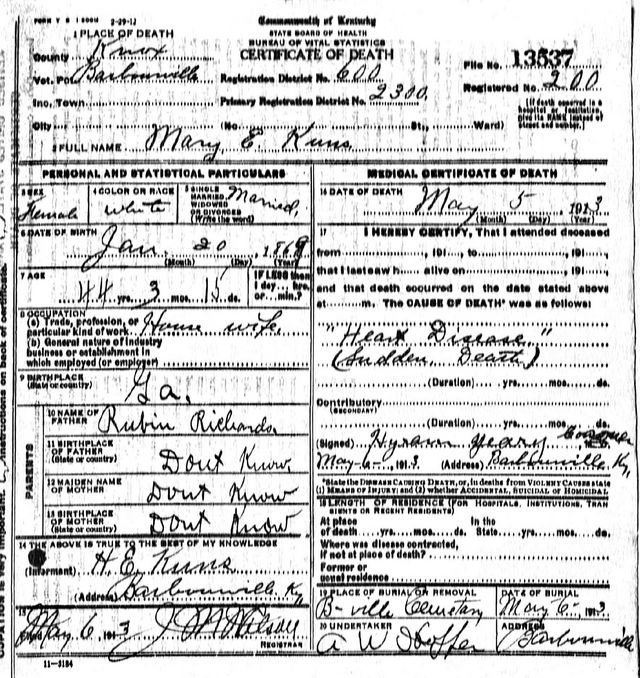 FORM V S 2-29-12
Commonwealth of Kentucky
STATE BOARD OF HEALTH
BUREAU OF VITAL STATISTICS
CERTIFICATE OF DEATH
1 PLACE OF DEATH
County Knox
Vot. Pct. Barbourville
Inc. Town
City
Registration District No. 600
Primary Registration District No. 2300
File No. 13537
Registered No. 200
(No. St., Ward)
(If death occurred in a hospital or institution, give its NAME instead of street and number.)
2 FULL NAME Mary E. Kuns
PERSONAL AND STATISTICAL PARTICULARS
3 SEX Female
4 COLOR OR RACE White
5 SINGLE MARRIED, WIDOWED OR DIVORCED (Write the word) Married,
6 DATE OF BIRTH
Jan. 20, 1869
(Month) (Day) (Year)
7 AGE
44 yrs. 3 mos. 15 ds.
IF LESS than 1 day... hrs. or... min.?
8 OCCUPATION
(a) Trade, profession, or particular kind of work House wife
(b) General nature of industry business or establishment in which employed (or employer)
9 BIRTHPLACE
(State or country) Ga.
PARENTS
10 NAME OF FATHER Rubin Richards
11 BIRTHPLACE OF FATHER
(State or country) Dont Know
12 MAIDEN NAME OF MOTHER Dont Know
13 BIRTHPLACE OF MOTHER
(State or country) Dont Know
14 THE ABOVE IS TRUE TO THE BEST OF MY KNOWLEDGE
(Informant) H. E. Kuns
(Address) Barbourville Ky
15
Filed May 6, 1913 J M Wilson
REGISTRAR
11-3184
MEDICAL CERTIFICATE OF DEATH
16 DATE OF DEATH
May 5 1913
(Month) (Day) (Year)
17 I HEREBY CERTIFY, That I attended deceased
from 191, to 191,
that I last saw h alive on 191,
and that death occurred on the date stated above
at m. The CAUSE OF DEATH* was as follows:
"Heart Disease"
(Sudden Death)
(Duration) yrs. mos. ds.
Contributory
(SECONDARY)
(Duration) yrs. mos. ds.
(Signed) Hyram Yeary Coroner
May-6-, 1913 (Address) Barbourville Ky,
*State the DISEASE CAUSING DEATH, or, in deaths from VIOLENT CAUSES state
(1) MEANS OF INJURY; and (2) whether ACCIDENTAL, SUICIDAL or HOMICIDAL
18 LENGTH OF RESIDENCE (FOR HOSPITALS, INSTITUTIONS, TRANSIENTS OR RECENT RESIDENTS)
At place of death yrs. mos. ds. In the State yrs. mos. ds.
Where was disease contracted,
if not at place of death?
Former or
usual residence
19 PLACE OF BURIAL OR REMOVAL
B-ville Cemetary
DATE OF BURIAL
May 6, 1913
20 UNDERTAKER
A W Hoffer
ADDRESS
Barbourville